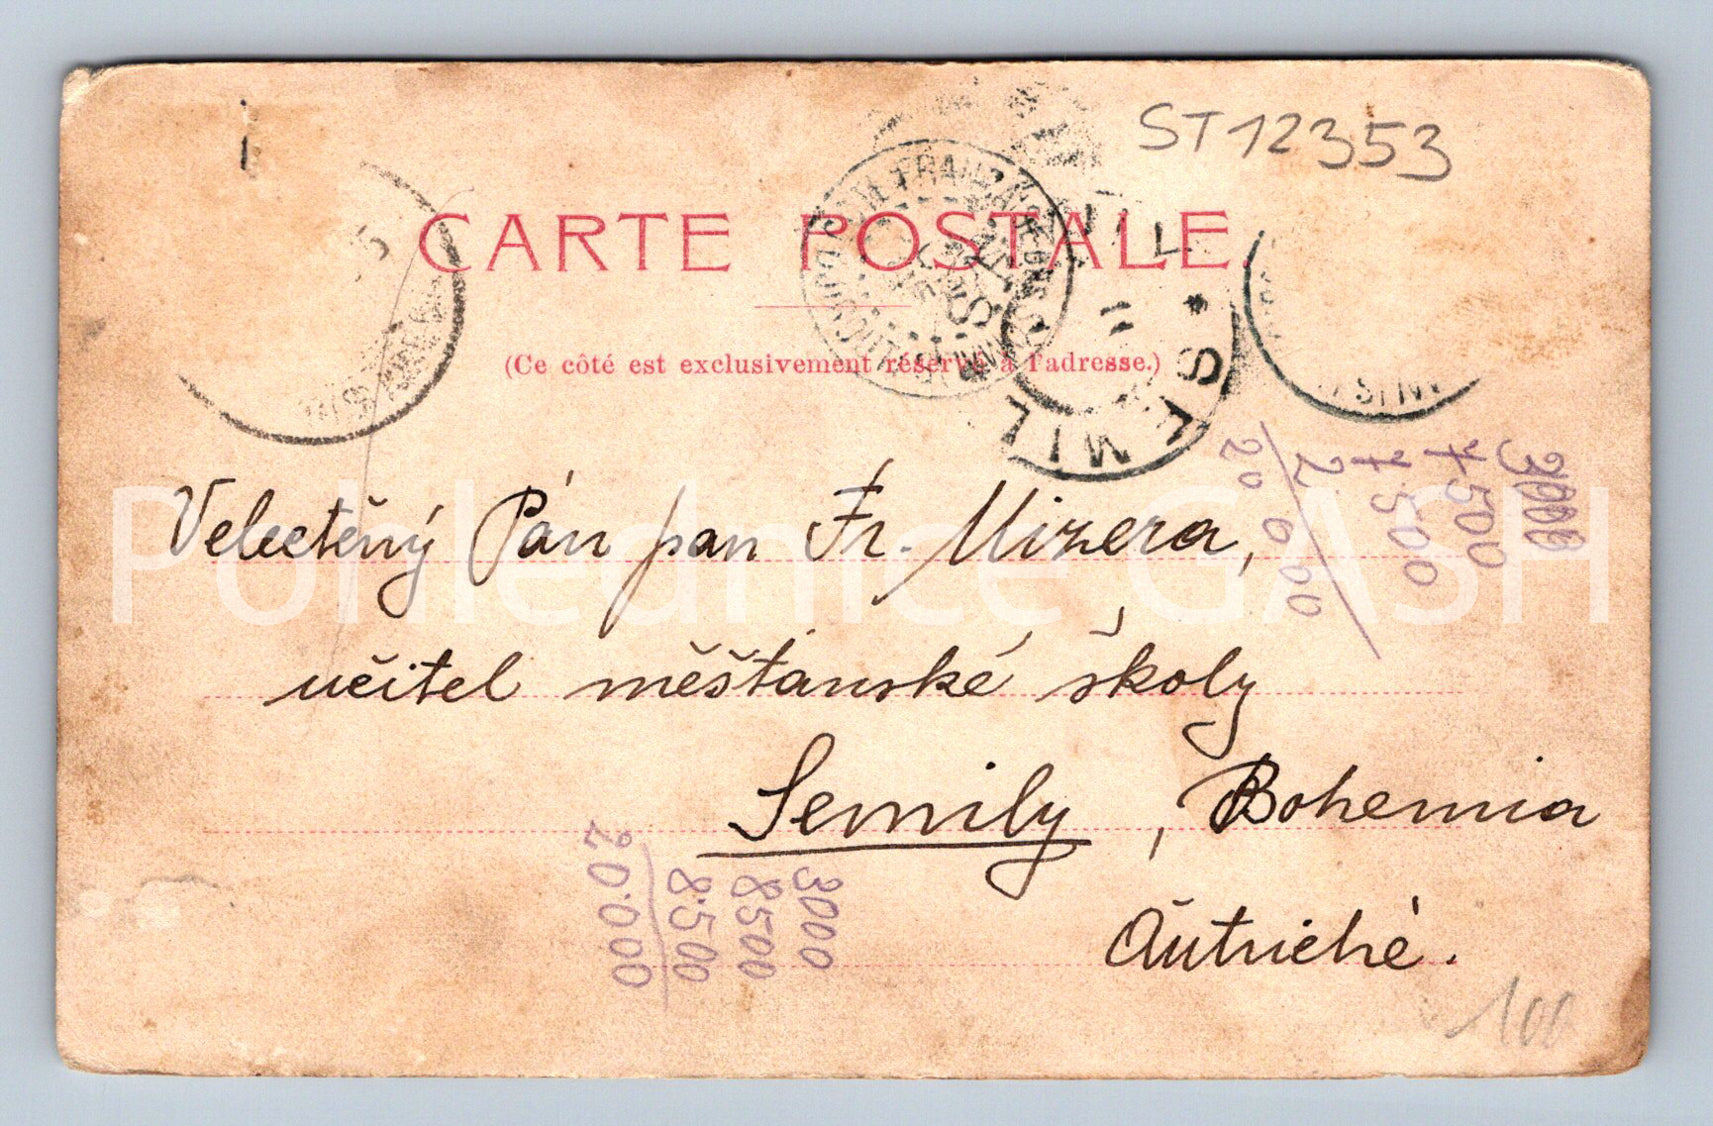 ST12353
CARTE POSTALE.
(Ce côté est exclusivement réservé à l'adresse.)
SEMIL
Velectěný Pán pan Fr. Mizera,
učitel měšťanské školy
Semily, Bohemia
Autriche.
3000
7500
7500
2
20000
3000
8500
8500
20.000
100
Pohlednice GASH